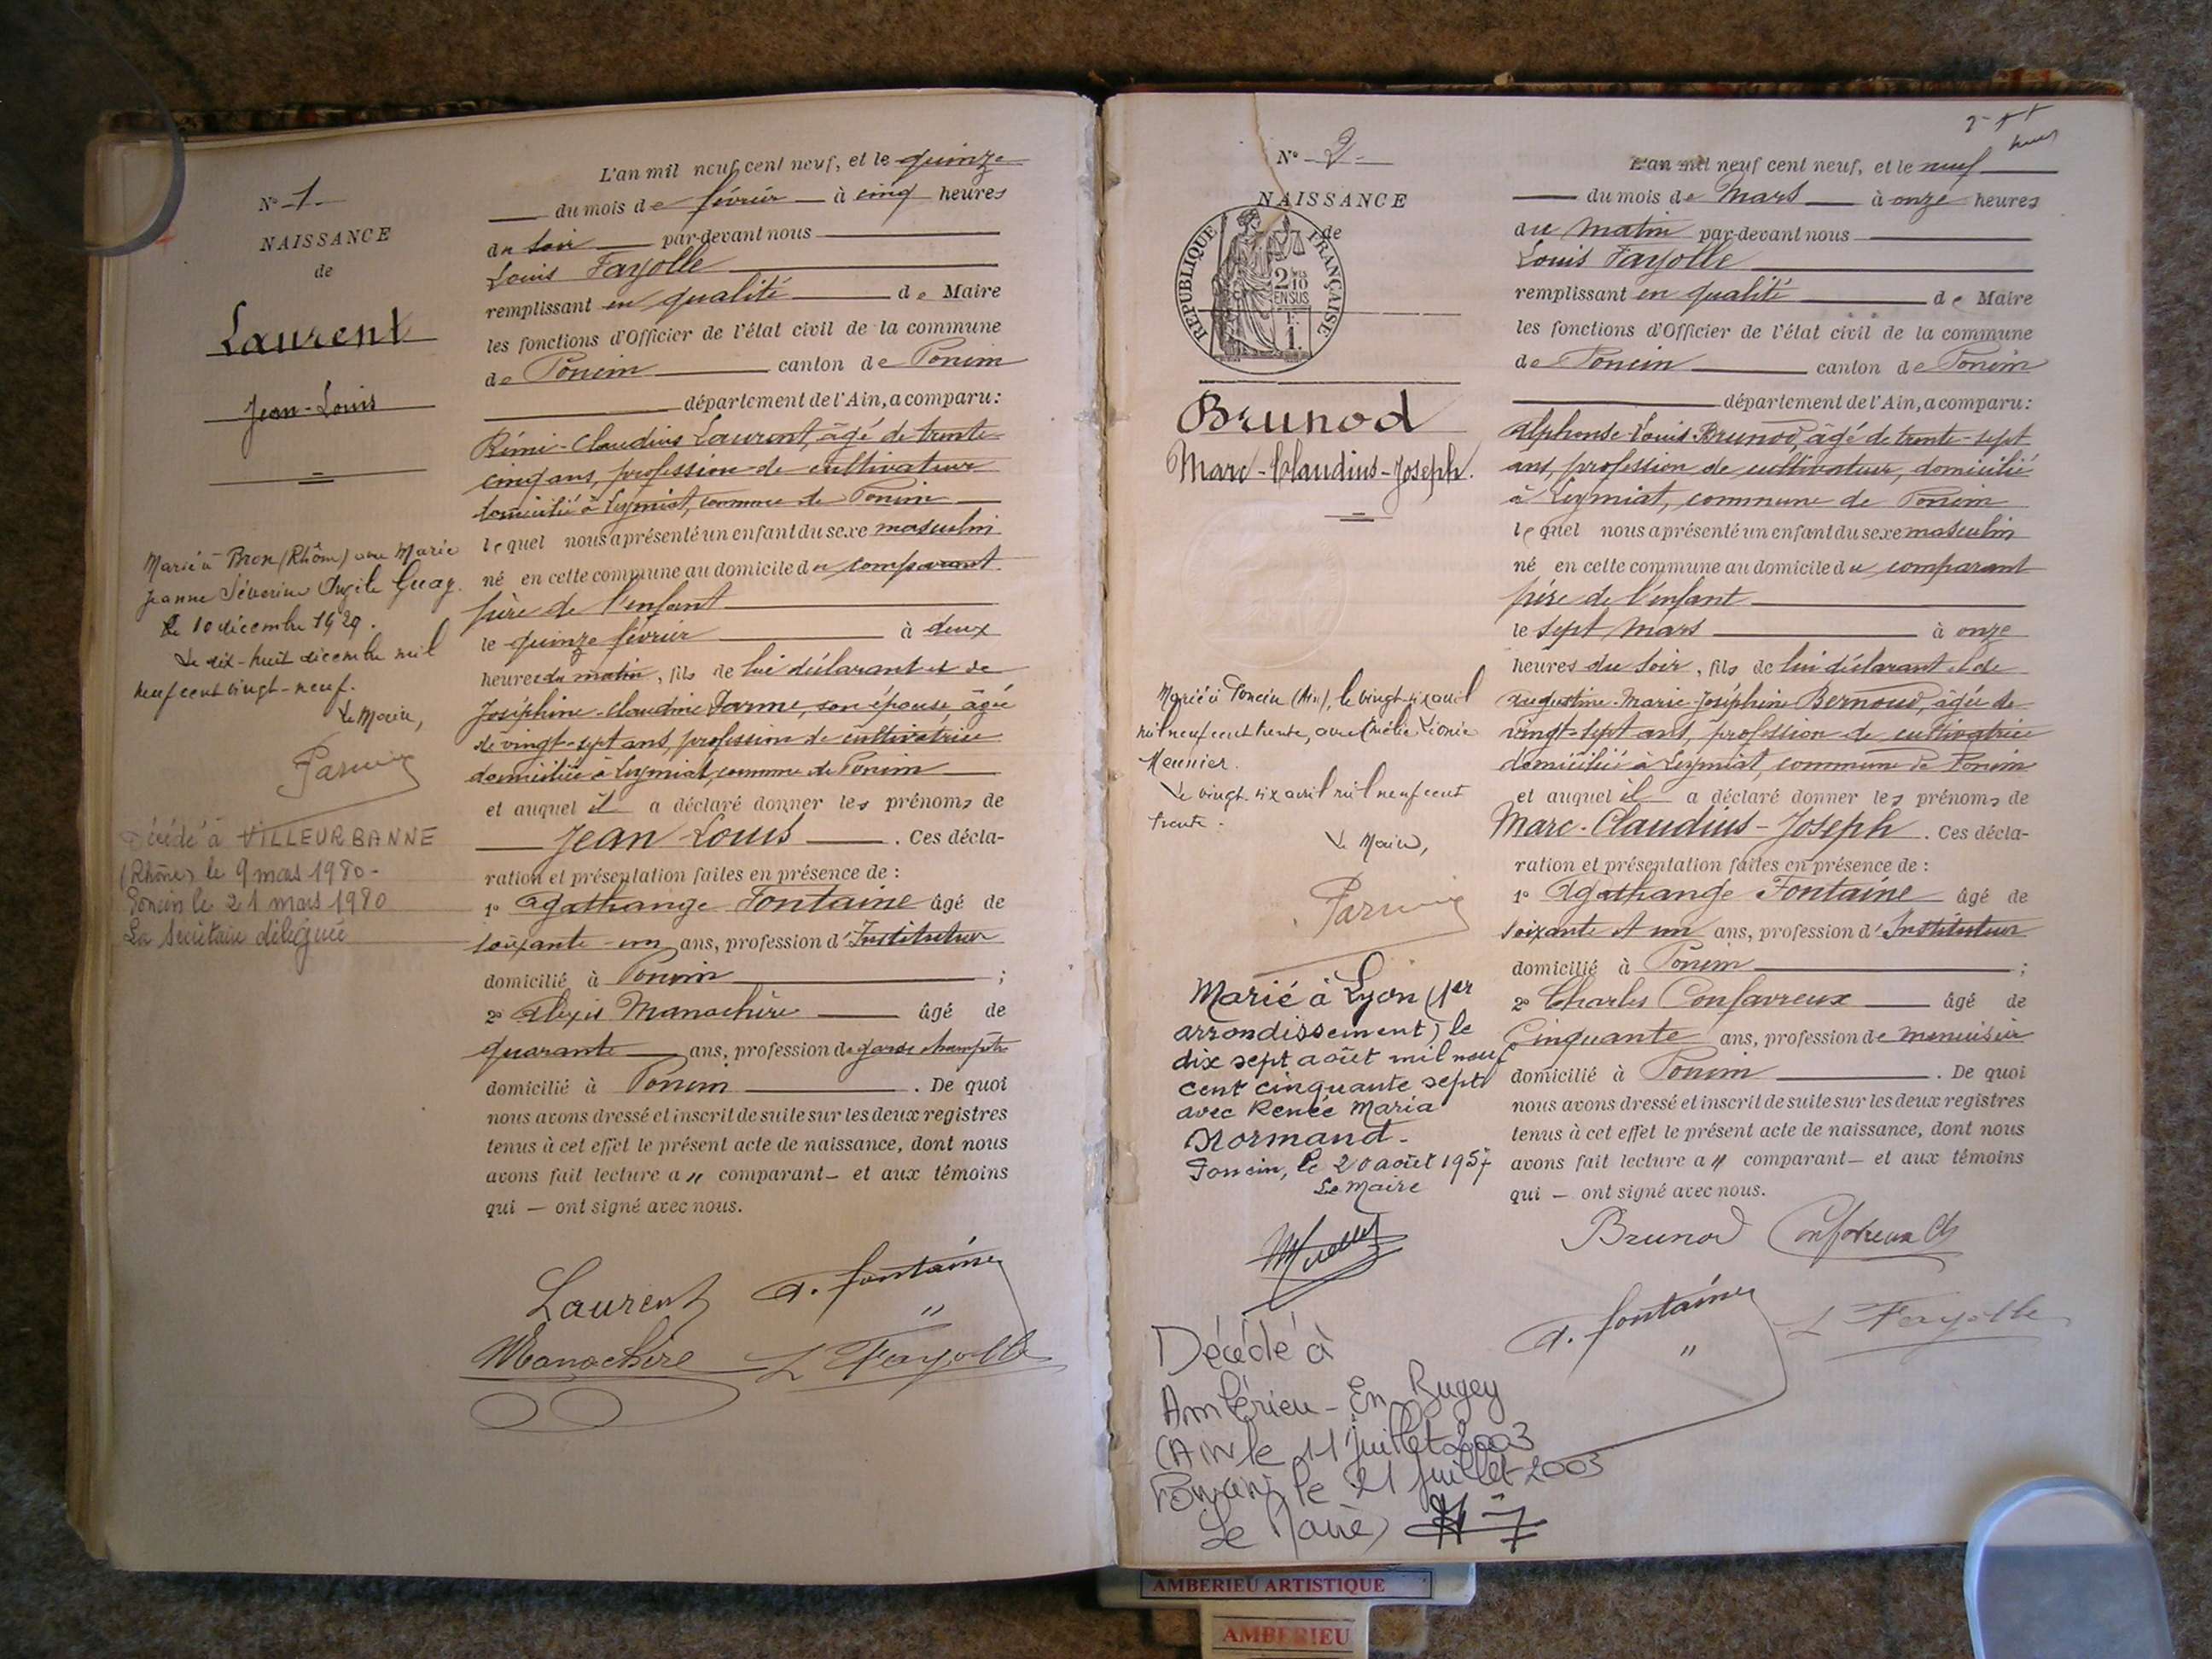 N° 1
NAISSANCE
de
Laurent
Jean-Louis
Marié à Bron (Rhône) avec Marie
Jeanne Séverine Guay
le 10 décembre 1929.
Le dix-huit décembre mil
neuf cent vingt-neuf.
Le Maire,
Décédé à VILLEURBANNE
(Rhône) le 9 mars 1980-
Poncin le 21 mars 1980
La Secrétaire déléguée
L'an mil neuf cent neuf, et le quinze
du mois de février à cinq heures
du soir par-devant nous
Louis Fayolle
remplissant en qualité de Maire
les fonctions d'Officier de l'état civil de la commune
de Poncin canton de Poncin
département de l'Ain, a comparu:
Rémi-Claudius Laurent, âgé de trente-
cinq ans, profession de cultivateur
domicilié à Leymiat, commune de Poncin
lequel nous a présenté un enfant du sexe masculin
né en cette commune au domicile du comparant
père de l'enfant
le quinze février à deux
heures du matin, fils de lui déclarant et de
Joséphine-Claudine, son épouse âgée
de vingt-sept ans, profession de cultivatrice
domiciliée à Leymiat, commune de Poncin
et auquel il a déclaré donner les prénoms de
Jean Louis. Ces décla-
ration et présentation faites en présence de:
1° Agathange Fontaine âgé de
soixante-un ans, profession d'Instituteur
domicilié à Poncin;
2° Alexis Manochère âgé de
quarante ans, profession de garde champêtre
domicilié à Poncin. De quoi
nous avons dressé et inscrit de suite sur les deux registres
tenus à cet effet le présent acte de naissance, dont nous
avons fait lecture a " comparant- et aux témoins
qui - ont signé avec nous.
Laurent A. fontaine
Manochère L Fayolle
N° 2
NAISSANCE
de
RÉPUBLIQUE FRANÇAISE
2/10
EN SUS
Brunod
Marc-Claudius-Joseph.
Marié à Poncin (Ain), le vingt-six avril
mil neuf cent trente, avec Amélie Léonie
Meunier.
Le vingt-six avril mil neuf cent
trente.
Le Maire,
Marié à Lyon (1er
arrondissement) le
dix sept août mil neuf
cent cinquante sept
avec Renée Maria
Normand-
Poncin, le 20 août 1957
Le Maire
Décédé à
Ambérieu-En Bugey
(AIN) le 11 juillet 2003
Poncin le 21 juillet 2003
Le Maire
L'an mil neuf cent neuf, et le neuf
du mois de Mars à onze heures
du matin par-devant nous
Louis Fayolle
remplissant en qualité de Maire
les fonctions d'Officier de l'état civil de la commune
de Poncin canton de Poncin
département de l'Ain, a comparu:
Alphonse-Louis Brunod, âgé de trente-sept
ans, profession de cultivateur, domicilié
à Leymiat, commune de Poncin
lequel nous a présenté un enfant du sexe masculin
né en cette commune au domicile du comparant
père de l'enfant
le sept Mars à onze
heures du soir, fils de lui déclarant et de
Augustine-Marie-Joséphine Bernoud, âgée de
vingt-sept ans, profession de cultivatrice
domiciliée à Leymiat, commune de Poncin
et auquel il a déclaré donner les prénoms de
Marc-Claudius-Joseph. Ces décla-
ration et présentation faites en présence de:
1° Agathange Fontaine âgé de
soixante et un ans, profession d'Instituteur
domicilié à Poncin;
2° Charles Confavreux âgé de
Cinquante ans, profession de menuisier
domicilié à Poncin. De quoi
nous avons dressé et inscrit de suite sur les deux registres
tenus à cet effet le présent acte de naissance, dont nous
avons fait lecture a " comparant- et aux témoins
qui - ont signé avec nous.
Brunod Confavreux Ch
A. fontaine L Fayolle
AMBERIEU ARTISTIQUE
AMBERIEU